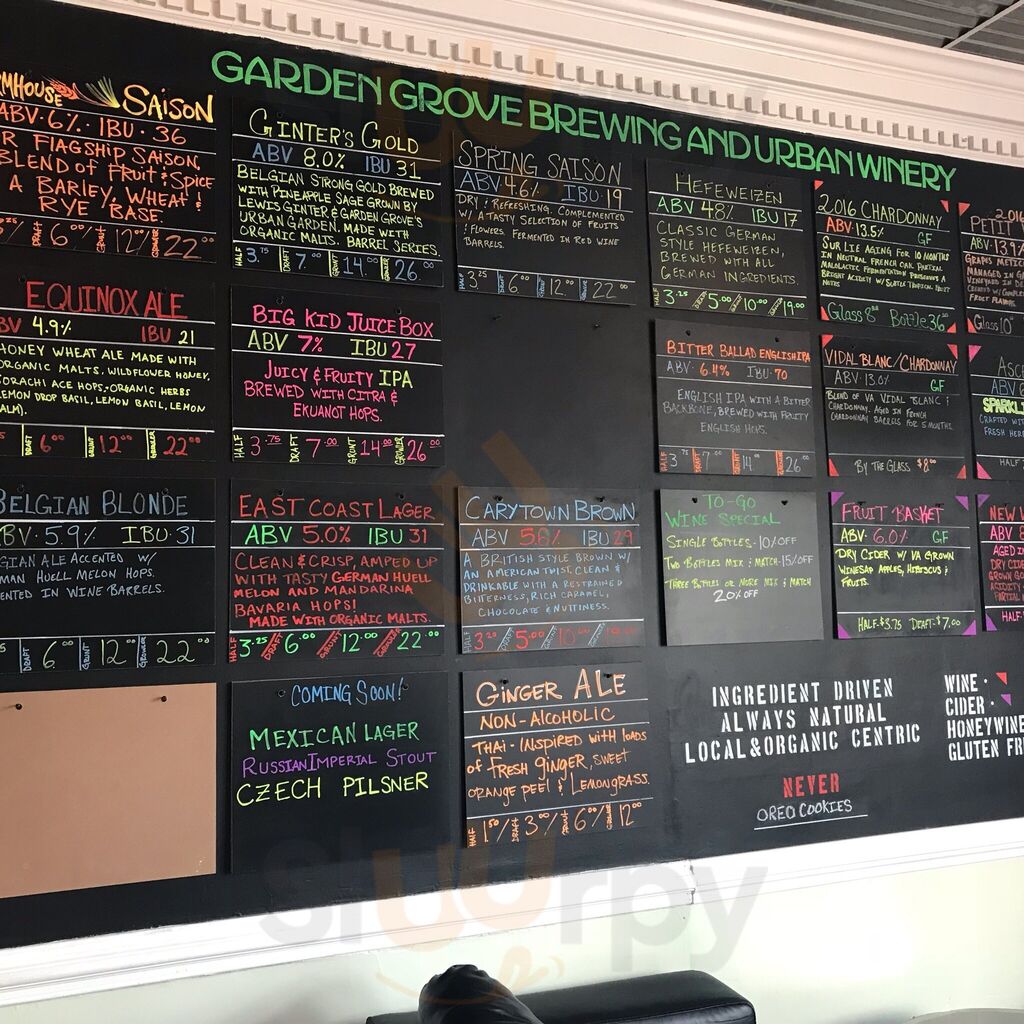 GARDEN GROVE BREWING AND URBAN WINERY
SAISON
ABV·6%· IBU·36
FLAGSHIP SAISON,
BLEND OF FRUIT & SPICE
A BARLEY, WHEAT &
RYE BASE
DRAFT 6.00 GRUNT 12.00 22.00
GINTER'S GOLD
ABV 8.0% IBU 31
BELGIAN STRONG GOLD BREWED
WITH PINEAPPLE SAGE GROWN BY
LEWIS GINTER & GARDEN GROVE'S
URBAN GARDEN. MADE WITH
ORGANIC MALTS. BARREL SERIES.
HALF 3.75 DRAFT 7.00 14.00 GROWLER 26.00
SPRING SAISON
ABV·4.6% IBU·19
DRY & REFRESHING. COMPLEMENTED
W/ A TASTY SELECTION OF FRUITS
& FLOWERS. FERMENTED IN RED WINE
BARRELS.
HALF 3.25 6.00 12.00 22.00
HEFEWEIZEN
ABV 4.8% IBU 17
CLASSIC GERMAN
STYLE HEFEWEIZEN,
BREWED WITH ALL
GERMAN INGREDIENTS.
HALF 3.25 5.00 10.00 19.00
2016 CHARDONNAY
ABV·13.5% GF
SUR LIE AGING FOR 10 MONTHS
IN NEUTRAL FRENCH OAK. PARTIAL
MALOLACTIC FERMENTATION
BRIGHT ACIDITY W/ TROPICAL FRUIT
NOTES
Glass 8.00 Bottle 36.00
PETIT
ABV·13.9%
Glass 10.00
EQUINOX ALE
4.9% IBU 21
HONEY WHEAT ALE MADE WITH
ORGANIC MALTS, WILDFLOWER HONEY,
SORACHI ACE HOPS & ORGANIC HERBS
LEMON DROP BASIL, LEMON BASIL, LEMON
BALM).
DRAFT 6.00 GRUNT 12.00 GROWLER 22.00
BIG KID JUICE BOX
ABV 7% IBU 27
JUICY & FRUITY IPA
BREWED WITH CITRA &
EKUANOT HOPS.
HALF 3.75 DRAFT 7.00 GRUNT 14.00 GROWLER 26.00
BITTER BALLAD ENGLISH IPA
ABV·6.4% IBU·70
ENGLISH IPA WITH A BITTER
BACKBONE, BREWED WITH FRUITY
ENGLISH HOPS.
HALF 3.75 7.00 14.00 26.00
VIDAL BLANC/CHARDONNAY
ABV·13.0% GF
BLEND OF VA VIDAL BLANC &
CHARDONNAY. AGED IN FRENCH
CHARDONNAY BARRELS FOR 5 MONTHS.
BY THE GLASS $8.00
SPARKL
CRAFTED
FRESH
HALF
BELGIAN BLONDE
5.9% IBU·31
BELGIAN ALE ACCENTED W/
HUELL MELON HOPS.
IN WINE BARRELS.
DRAFT 6.00 GRUNT 12.00 GROWLER 22.00
EAST COAST LAGER
ABV 5.0% IBU 31
CLEAN & CRISP, AMPED UP
WITH TASTY GERMAN HUELL
MELON AND MANDARINA
BAVARIA HOPS!
MADE WITH ORGANIC MALTS.
HALF 3.25 DRAFT 6.00 GROWLER 12.00 22.00
CARYTOWN BROWN
ABV 5.6% IBU 29
A BRITISH STYLE BROWN W/
AN AMERICAN TWIST. CLEAN &
DRINKABLE WITH A RESTRAINED
BITTERNESS, RICH CARAMEL,
CHOCOLATE & NUTTINESS.
HALF 3.20 5.00 10.00
TO-GO
WINE SPECIAL
SINGLE BOTTLES·10% OFF
TWO BOTTLES MIX & MATCH·15% OFF
THREE BOTTLES OR MORE MIX & MATCH
20% OFF
FRUIT BASKET
ABV·6.0% GF
DRY CIDER W/ VA GROWN
WINESAP APPLES, HIBISCUS &
FRUITS.
HALF·$3.75 DRAFT·$7.00
NEW
ABV
AGED IN
DRY CIDER
ACIDITY
PARTIAL
HALF
COMING SOON!
MEXICAN LAGER
RUSSIAN IMPERIAL STOUT
CZECH PILSNER
GINGER ALE
NON-ALCOHOLIC
THAI-INSPIRED WITH LOADS
OF FRESH GINGER, SWEET
ORANGE PEEL & LEMONGRASS.
HALF 1.50 DRAFT 3.00 GRUNT 6.00 12.00
INGREDIENT DRIVEN
ALWAYS NATURAL
LOCAL & ORGANIC CENTRIC
NEVER
OREO COOKIES
WINE·
CIDER·
HONEYWINE
GLUTEN FR
sluurpy